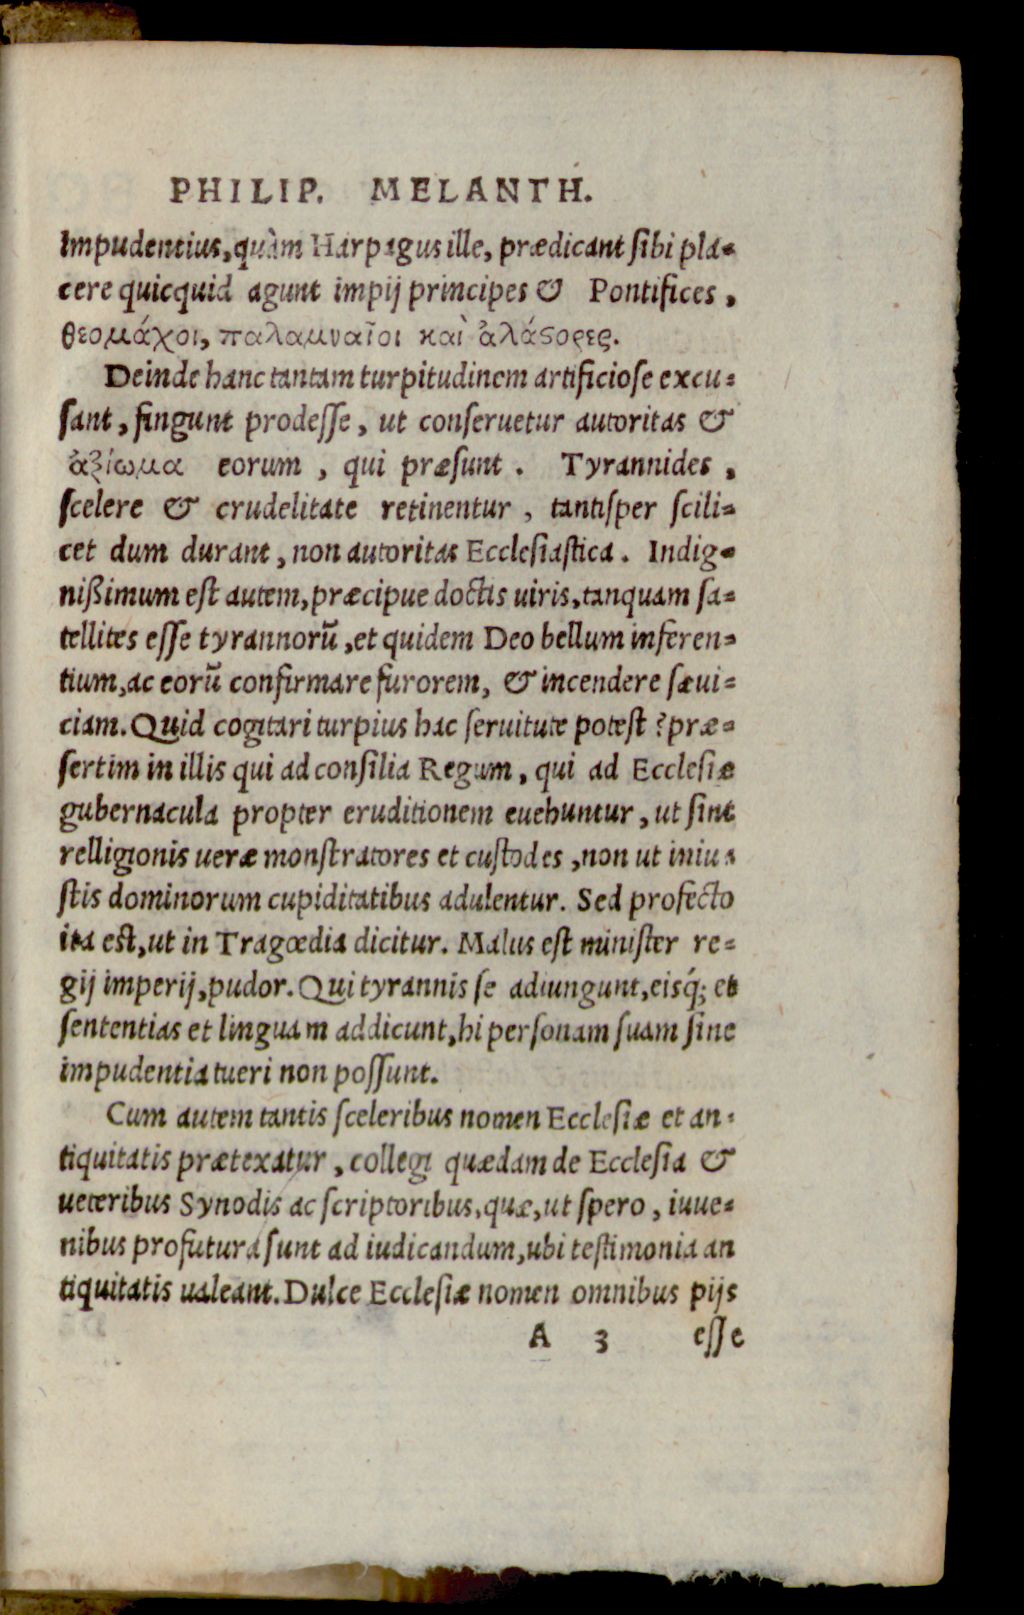 PHILIP. MELANTH.
Impudentius, quàm Harpagus ille, prædicant sibi pla=
cere quicquid agunt impij principes & Pontifices,
θεομάχοι, παλαμναῖοι καὶ ἀλάϛορες.
Deinde hanc tantam turpitudinem artificiose excu=
sant, fingunt prodesse, ut conseruetur autoritas &
ἀξίωμα eorum, qui præsunt. Tyrannides,
scelere & crudelitate retinentur, tantisper scili=
cet dum durant, non autoritas Ecclesiastica. Indig=
nißimum est autem, præcipue doctis uiris, tanquam sa=
tellites esse tyrannorũ, et quidem Deo bellum inferen=
tium, ac eorũ confirmare furorem, & incendere sæui=
ciam. Quid cogitari turpius hac seruitute potest? præ=
sertim in illis qui ad consilia Regum, qui ad Ecclesiæ
gubernacula propter eruditionem euehuntur, ut sint
relligionis ueræ monstratores et custodes, non ut iniu=
stis dominorum cupiditatibus adulentur. Sed profecto
ita est, ut in Tragœdia dicitur. Malus est minister re=
gij imperij, pudor. Qui tyrannis se adiungunt, eisq́; et
sententias et linguam addicunt, hi personam suam sine
impudentia tueri non possunt.
Cum autem tantis sceleribus nomen Ecclesiæ et an=
tiquitatis prætexatur, collegi quædam de Ecclesia &
ueteribus Synodis ac scriptoribus, quæ, ut spero, iuue=
nibus profutura sunt ad iudicandum, ubi testimonia an
tiquitatis ualeant. Dulce Ecclesiæ nomen omnibus pijs
A 3 esse